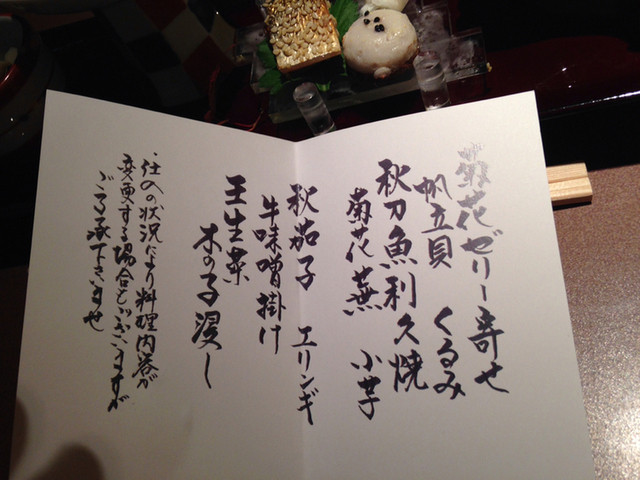 菊花ゼリー寄せ
帆立貝 くるみ
秋刀魚利久焼
菊花蕪 小芋
秋茄子 エリンギ
牛味噌掛け
壬生菜
木の子浸し
・仕入の状況により料理内容が
変更する場合もございますが
ご了承下さいませ